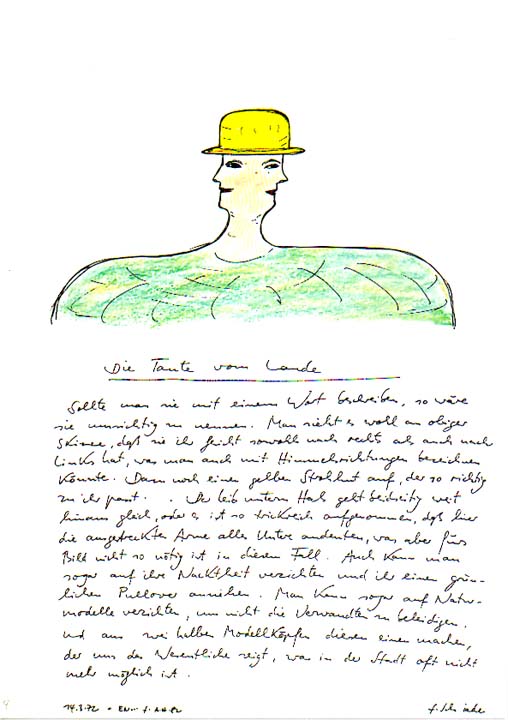 Die Tante vom Lande
Sollte man sie mit einem Wort beschreiben, so wäre
sie umsichtig zu nennen. Man sieht es wohl an obiger
Skizze, daß sie ihr Gesicht sowohl nach rechts als auch nach
links hat, was man auch mit Himmelsrichtungen bezeichnen
könnte. Dazu noch einen gelben Strohhut auf, der so richtig
zu ihr passt. Ihr Leib unterm Hals geht beidseitig weit
hinaus gleich, oder es ist so trickreich aufgenommen, daß hier
die ausgestreckten Arme alles Untere andeuten, was aber fürs
Bild nicht so nötig ist in diesem Fall. Auch kann man
sogar auf ihre Nacktheit verzichten und ihr einen grün-
lichen Pullover anziehen. Man kann sogar auf Natur-
modelle verzichten, um nicht die Verwandten zu beleidigen.
und aus zwei halben Modellköpfen diesen einen machen,
der uns das Wesentliche zeigt, was in der Stadt oft nicht
mehr möglich ist.
14.3.72